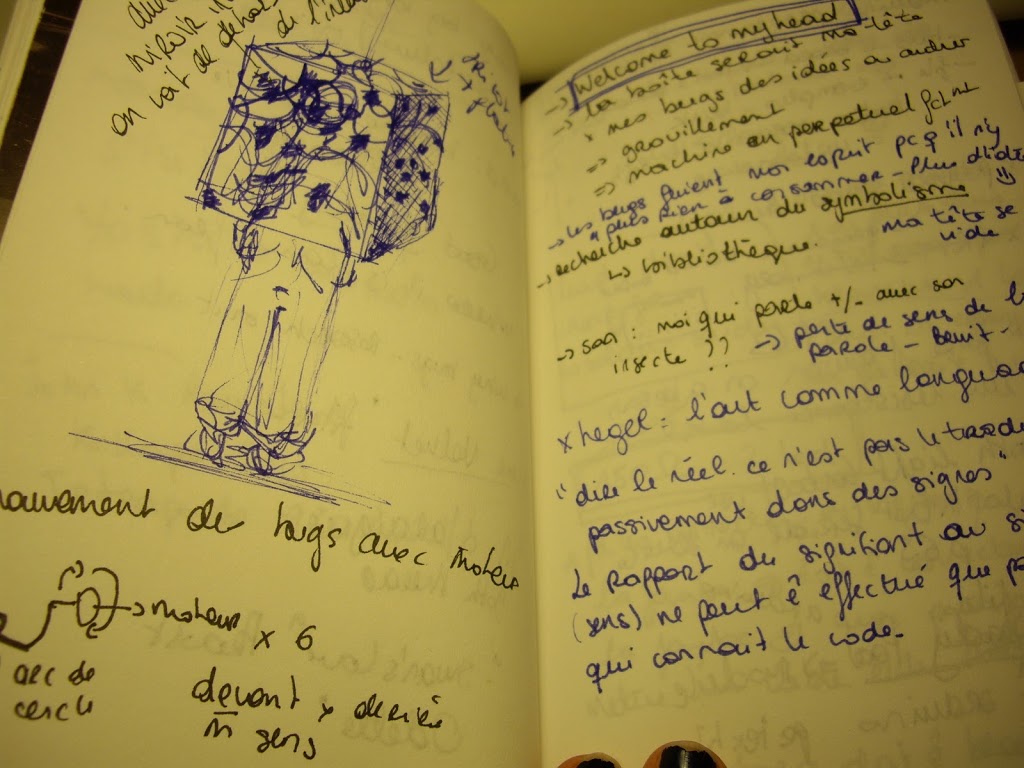 miroir
on voit de dehors
de l'int
mouvement de bugs avec moteur
→ moteur x 6
arc de
cercle
devant x derrière
m̄ sens
Welcome to my head
→ la boîte serait ma tête
x mes bugs des idées ou
⇒ grouillement
⇒ machine en perpetuel fctnt
→ les bugs fuient mon esprit pcq il n'y
a plus rien à consommer - Plus d'idée
→ recherche autour du symbolisme
ma tête se
vide
↳ bibliothèque.
→ son : moi qui parle +/- avec son
insecte ?? → perte de sens de la
parole - Bruit -
x hegel : l'art comme language
"dire le réel. ce n'est pas le
passivement dans des signes"
Le rapport du signifiant au
(sens) ne peut ê effectué que
qui connait le code.